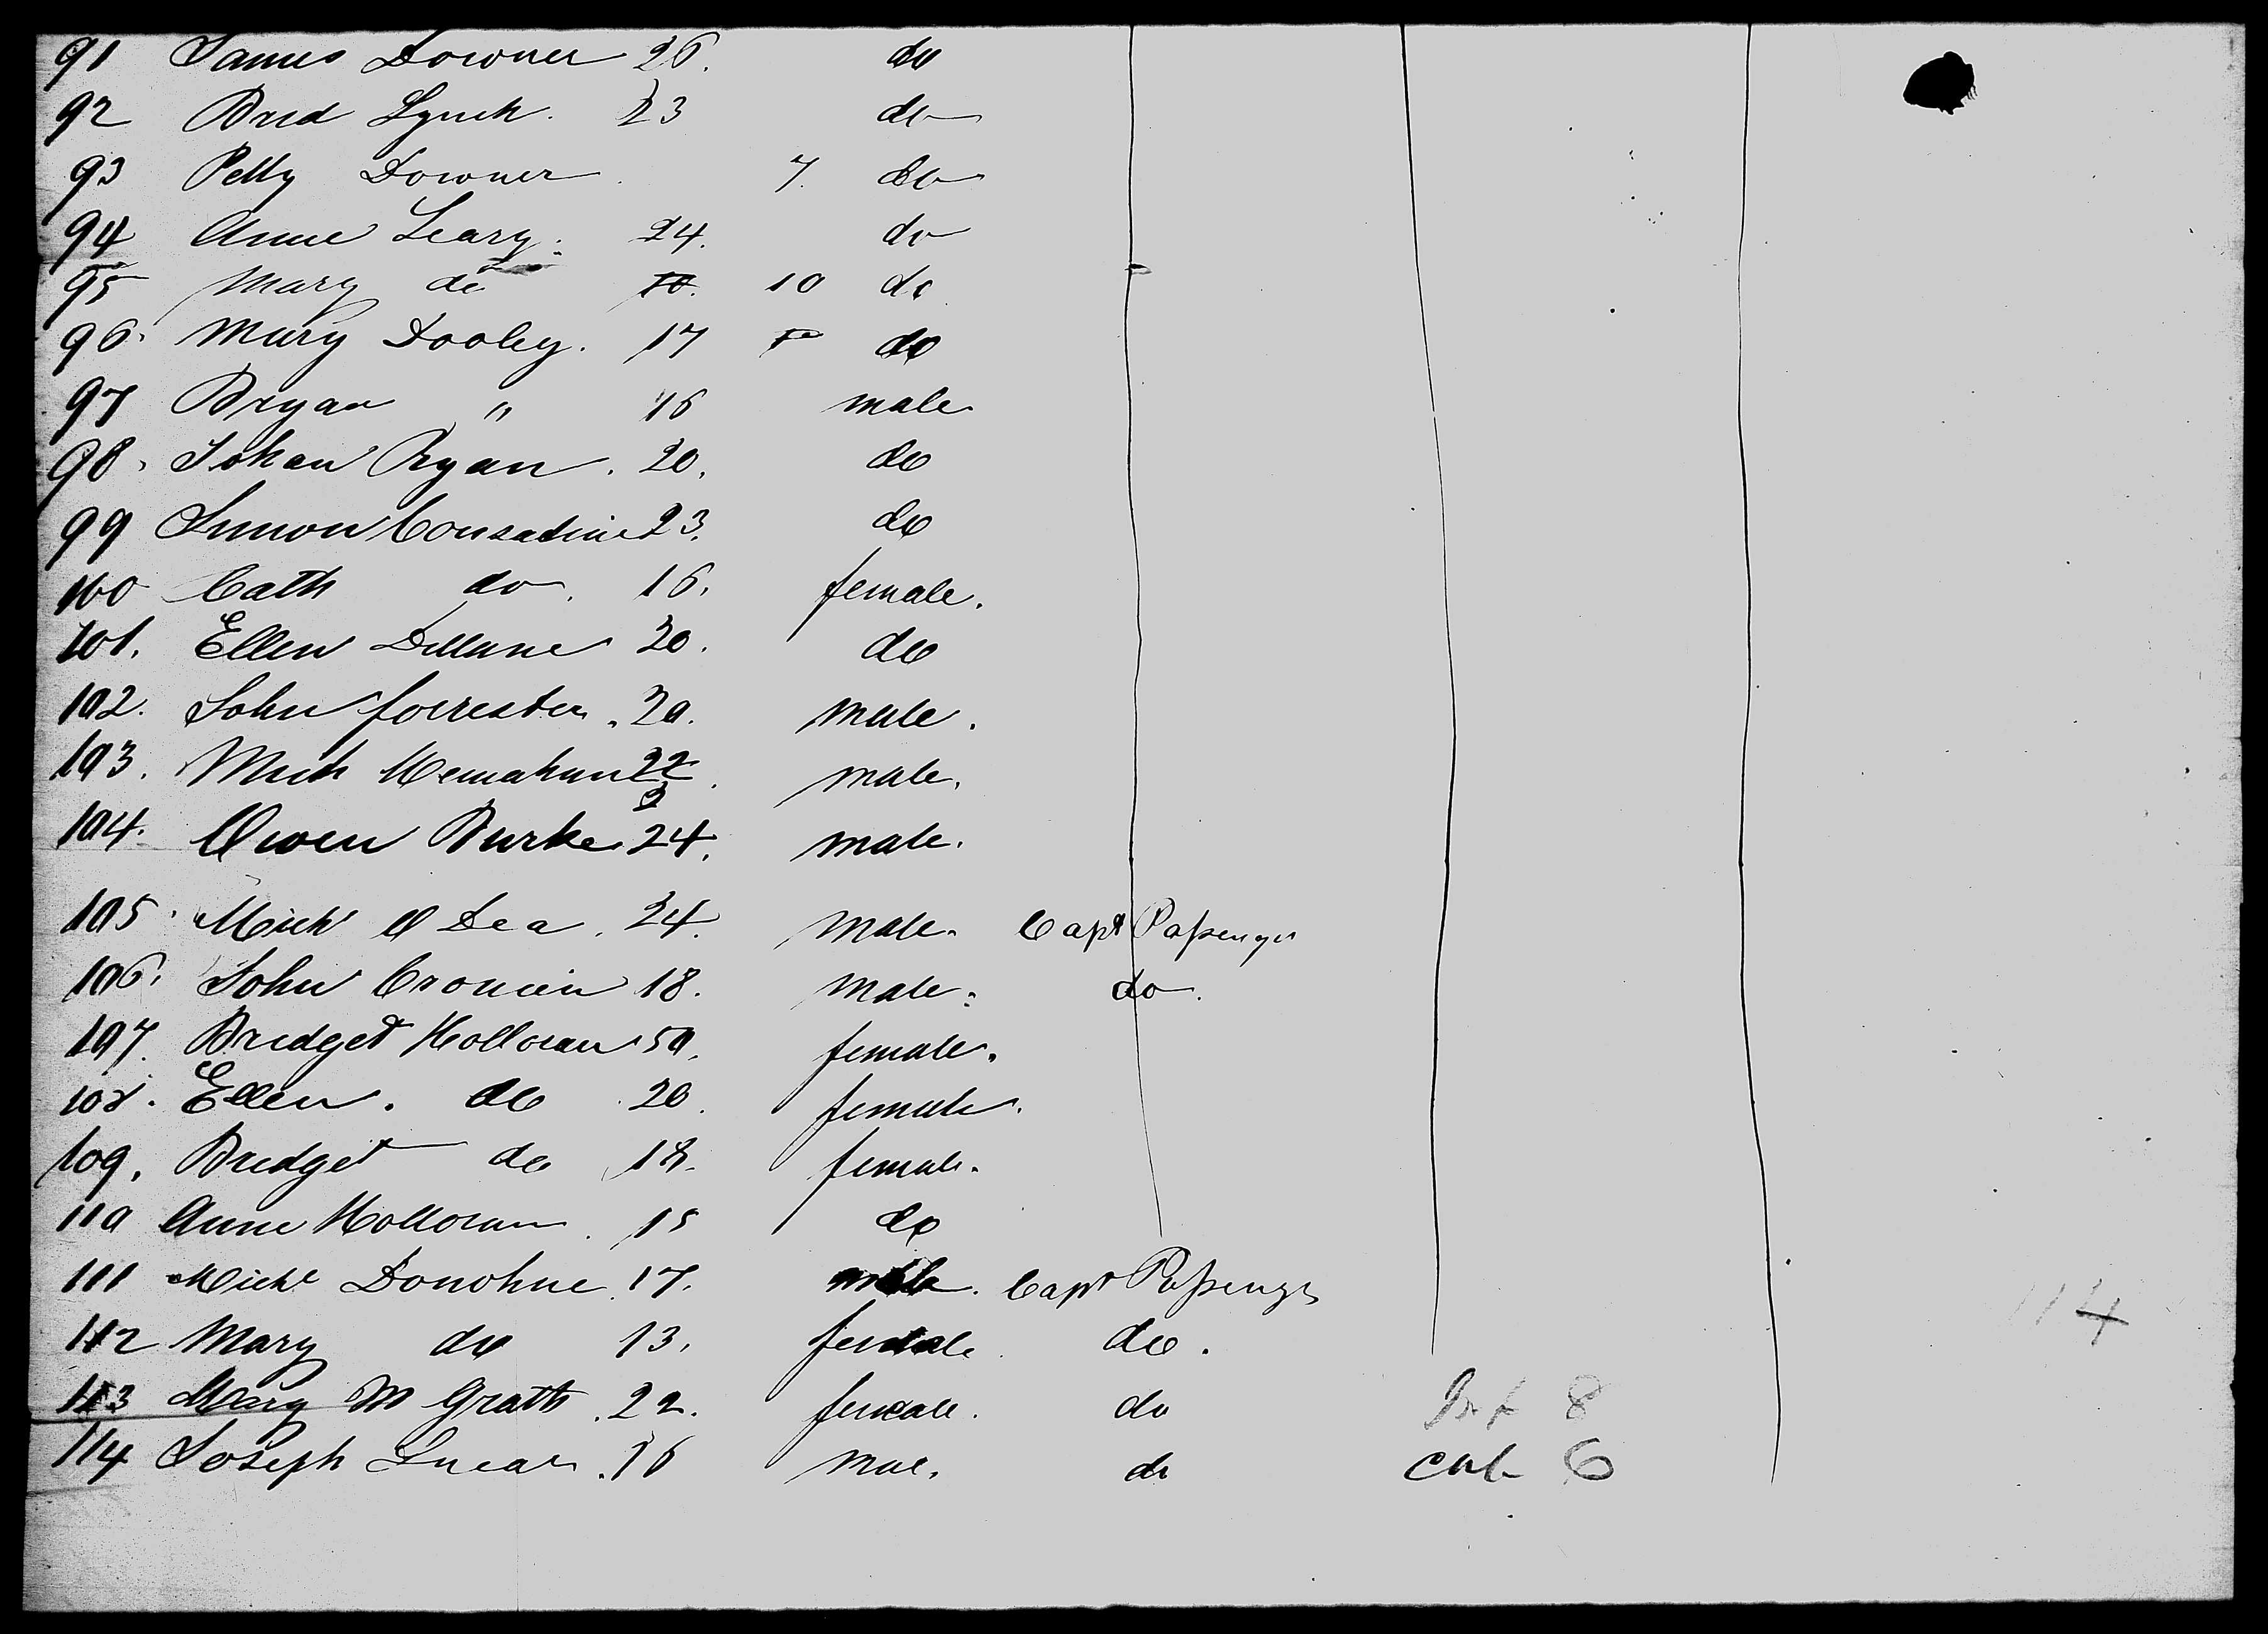 91 James Downer 26. do
92 Brid Lynch. 23 do
93 Patty Downer 7. do
94 Anne Leary. 24. do
95 Mary do 10. 10 do
96. Mary Dooley. 17 do
97 Bryan " 16 male
98. Johan Ryan. 20. do
99 Simon Consadine 23. do
100 Cath do. 16. female.
101. Ellen Dillane 20. do
102. John forrester. 20. male.
103. Mich Memahun 22. male.
104. Owen Burke 24. male.
105. Mich O Dea. 24. male. Capt Passenger
106. John Cronien 18. male. do.
107. Bridget Holloran 50. female.
108. Ellen. do 20. female.
109. Bridget do 18. female.
110 Anne Holloran. 15 do
111 Michl Donohue. 17. male. Capt Passengr
112 Mary do 13. female do.
114
113 Mary M Grath. 22. female. do Inf 8
114 Joseph Lucas. 16 mae. do cab 6